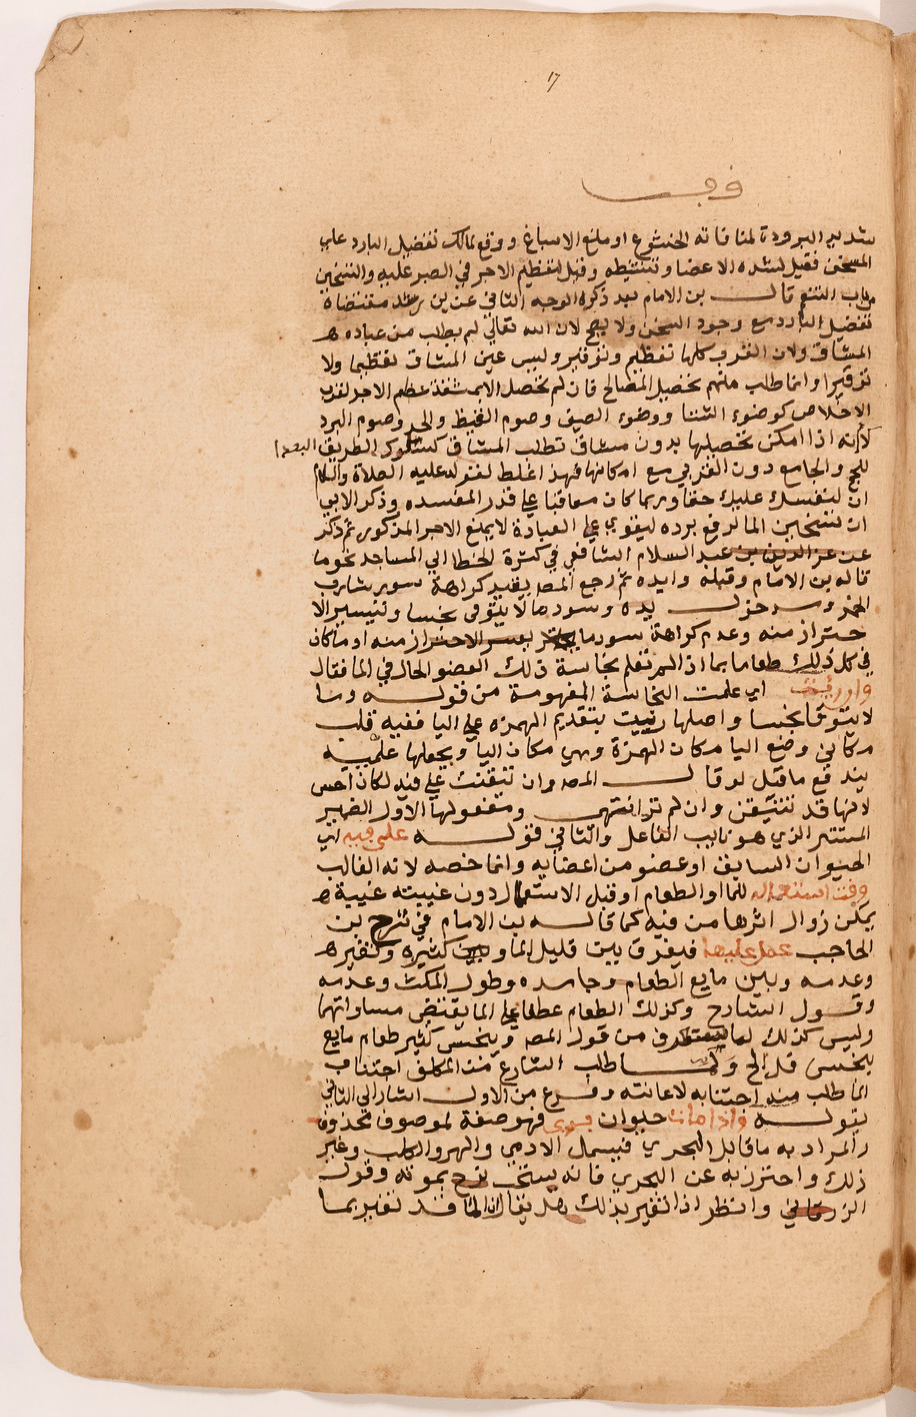 ١٧
وقف
شديد البرودة لمنافاته الخشوع او منع الاسباغ ووقع لمالك تفضيل البارد علي
المسخن فقيل لشده الاعضا وتنشيطه وقيل لتعظيم الاجر في الصبر عليه والتسخين
من باب التنعم قال بن الامام بعد ذكره الوجه الثاني عن بن رشد مقتضاه
تفضيل البارد مع وجود السخن ولا يصح لان الله تعالي لم يطلب من عباده
المشاق ولان القرب كلها تعظيم وتوقير وليس عين المشاق تعظيما ولا
توقيرا وانما طلب منهم تحصيل المصالح فان لم تحصل الا بمشقة عظم الاجر لقرب
الاخلاص كوضوء الشتا ووضوء الصيف وصوم القيظ والحر وصوم البرد
لانه اذا امكن تحصيلها بدون مشاق تطلب المشاق كسلوك الطريق البعدا
للحج والجامع دون القربي مع امكانها فهذ اغلط لقوله عليه الصلاة والسلام
ان لنفسك عليك حقا وربما كان معاقبا علي قدر المفسده وذكر الابي
ان تسخين الما لرفع برده ليقوي علي العبادة لا يمنع الاجر المذكور ثم ذكر
عن عز الدين بن عبد السلام الشافعي في كثرة الخطا الي المساجد نحو ما
قاله بن الامام وقبله وايده ثم رجع المصـ يقيد كراهة سور شارب
الخمر وسـ حول يده وسور مالا يتوقي نجسا وتيسير الا
حتراز منه وعدم كراهة سور ما بعسر الاحتراز منه او ما كان
في كل ذلك طعاما بما اذا لم تعلم نجاسة ذلك العضو الحال في الما فقال
وان ريئت اي علمت النجاسة المفهومة من قوله وما
لا يتوقا نجسا واصلها رييت بتقديم الهمزه علي اليا ففيه قلب
مكاني وضع اليا مكان الهمزة وهي مكان اليا وبجعلها علمية
يندفع ما قيل لو قال المصـ وان تيقنت علي فيه لكان احسن
لانها قد تتيقن وان لم تر انتهي ومفعولها الاول الضمير
المستتر الذي هو نايب الفاعل والثاني قوله على فيه اي
الحيوان السابق او عضو من اعضايه وانما خصه لانه الغالب
وقت استعماله للما او الطعام او قبل الاستعمال دون غيبته غيبة
يمكن زوال اثرها من فيه كما قاله بن الامام في شرح بن
الحاجب عمل عليها فيفرق بين قليل الما وبين كثيره وتغيره
وعدمه وبين مايع الطعام وجامده وطول المكث وعدمه
وقول الشارح وكذلك الطعام عطفا علي الما يقتضي مساواتهما
وليس كذلك لما من قول المصـ وينجس كثير طعام مايع
بنجس قل الخ ولما طلب الشارع من المكلف اجتناب
انما طلب منه اجتنابه لاعانته وفرع من الاول اشار الي الثاني
بقوله واذا مات حيوان بري فهو صفة لموصوف محذوف
والمراد به ما قابل البحري فيشمل الادمي والهر والكلب وغير
ذلك واحترز به عن البحري فانه يستحب نزح بموته وقول
الزرقاني وانظر اذا تغير بذلك هل يقال ان الما قد تغير بما